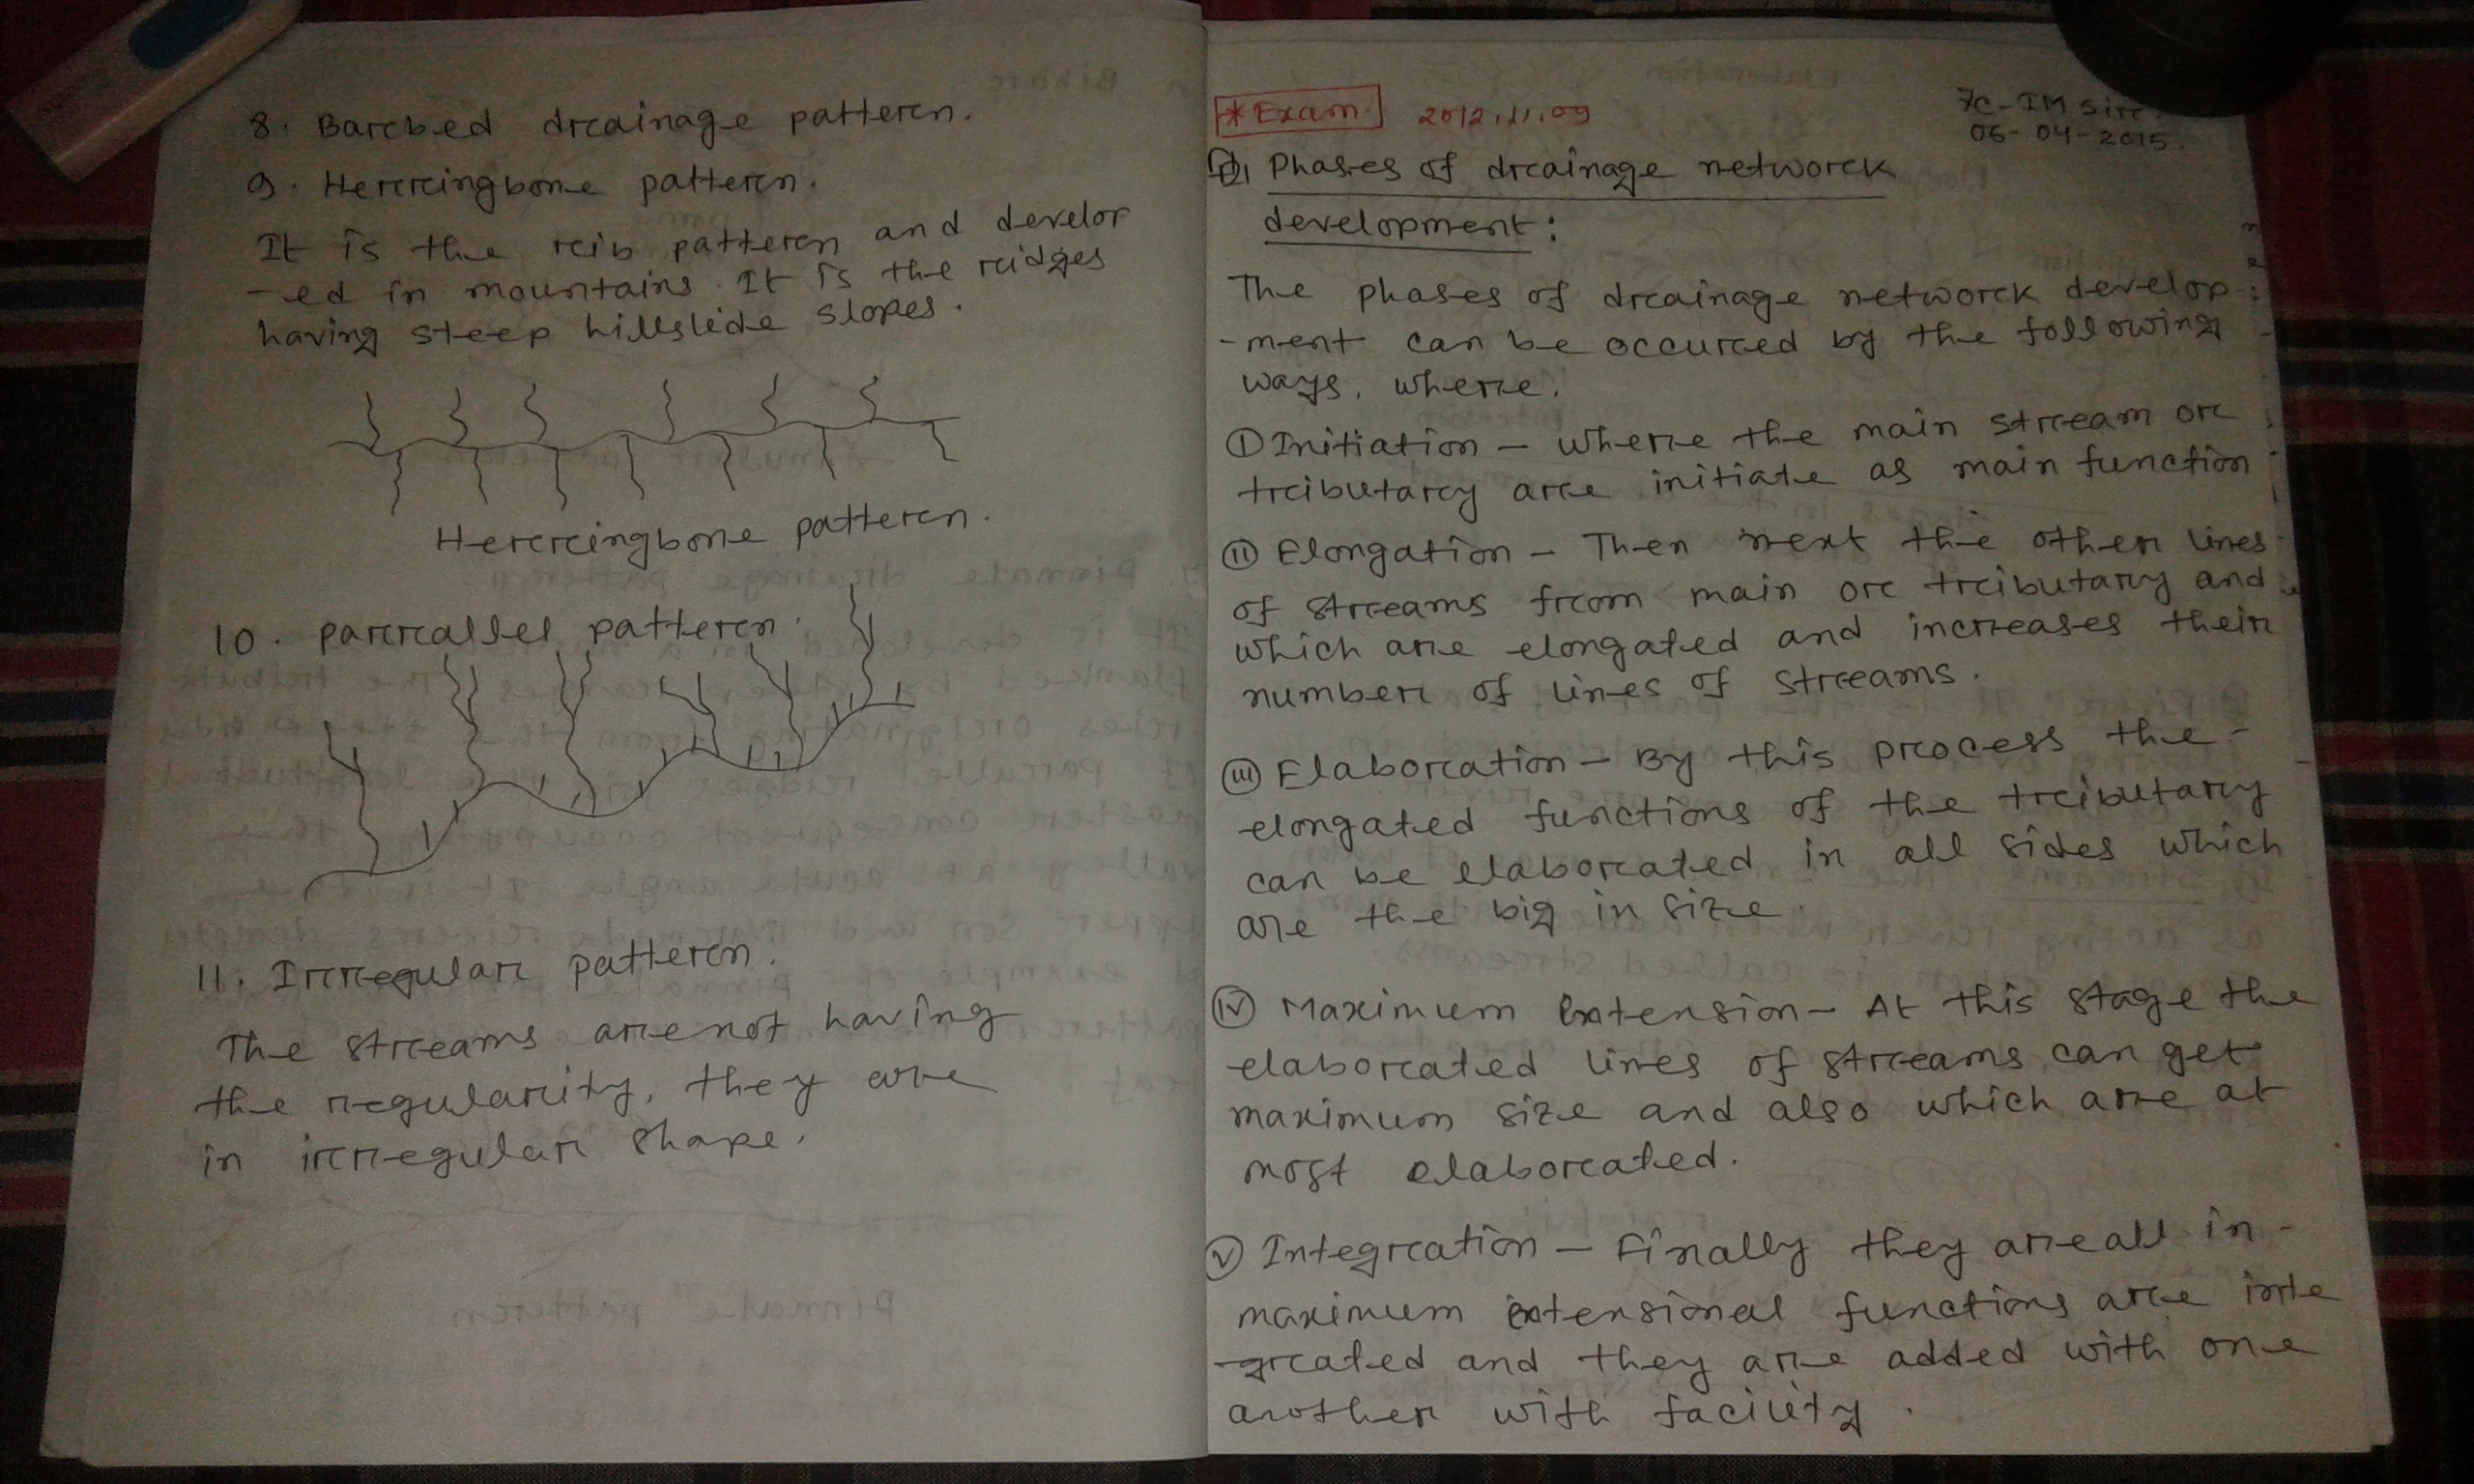 8. Barbed drainage pattern.
9. Herringbone pattern.
It is the rib pattern and develop
-ed in mountains. It is the ridges
having steep hillslide slopes.
Herringbone pattern.
10. parrallel pattern.
11. Irregular pattern.
The streams are not having
the regularity, they are
in irregular shape.
*Exam. 2012, 11, 09
7C-IM Sir.
06-04-2015.
Phases of drainage network
development:
The phases of drainage network develop
-ment can be occured by the following
ways, where.
(I) Initiation - where the main stream or
tributary are initiate as main function
(II) Elongation - Then next the other lines
of streams from main or tributary and
which are elongated and increases their
number of lines of streams.
(III) Elaboration - By this process the-
elongated functions of the tributary
can be elaborated in all sides which
are the big in size.
(IV) Maximum Extension - At this stage the
elaborated lines of streams can get
maximum size and also which are at
most elaborated.
(V) Integration - Finally they are all in-
maximum extensional functions are inte
-grated and they are added with one
another with facility.